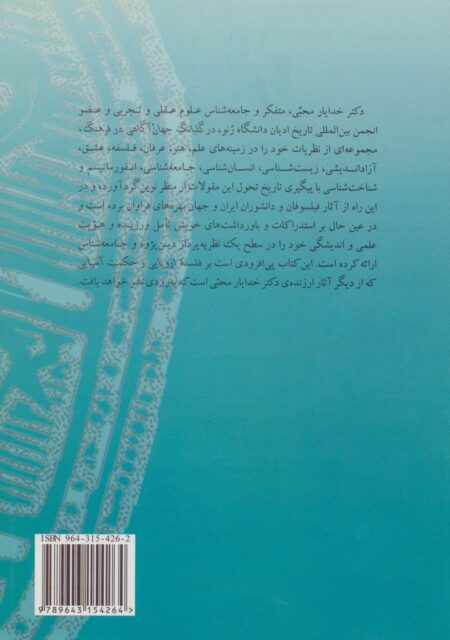 دکتر خدایار محبّی، متفکر و جامعه‌شناس علوم عقلی و تجربی و عضو
انجمن بین‌المللی تاریخ ادیان دانشگاه ژنو، در گلبانگ جهان‌آگاهی در فرهنگ،
مجموعه‌ای از نظریات خود را در زمینه‌های علم، هنر، عرفان، فلسفه، عشق،
آزاداندیشی، زیست‌شناسی، انسان‌شناسی، جامعه‌شناسی، انفورماتیسم و
شناخت‌شناسی با پیگیری تاریخ تحول این مقولات از منظر نوین گرد آورده و در
این راه از آثار فیلسوفان و دانشوران ایران و جهان بهره‌های فراوان برده است و
در عین حال بر استدراکات و باورداشت‌های خویش تأمل ورزیده و هویت
علمی و اندیشگی خود را در سطح یک نظریه‌پرداز دین‌پژوه و جامعه‌شناس
ارائه کرده است. این کتاب پی‌افزودی است بر فلسفهٔ اروپایی و حکمت آسیایی
که از دیگر آثار ارزنده‌ی دکتر خدایار محبّی است که به‌زودی نشر خواهد یافت.
ISBN 964-315-426-2
9789643154264>